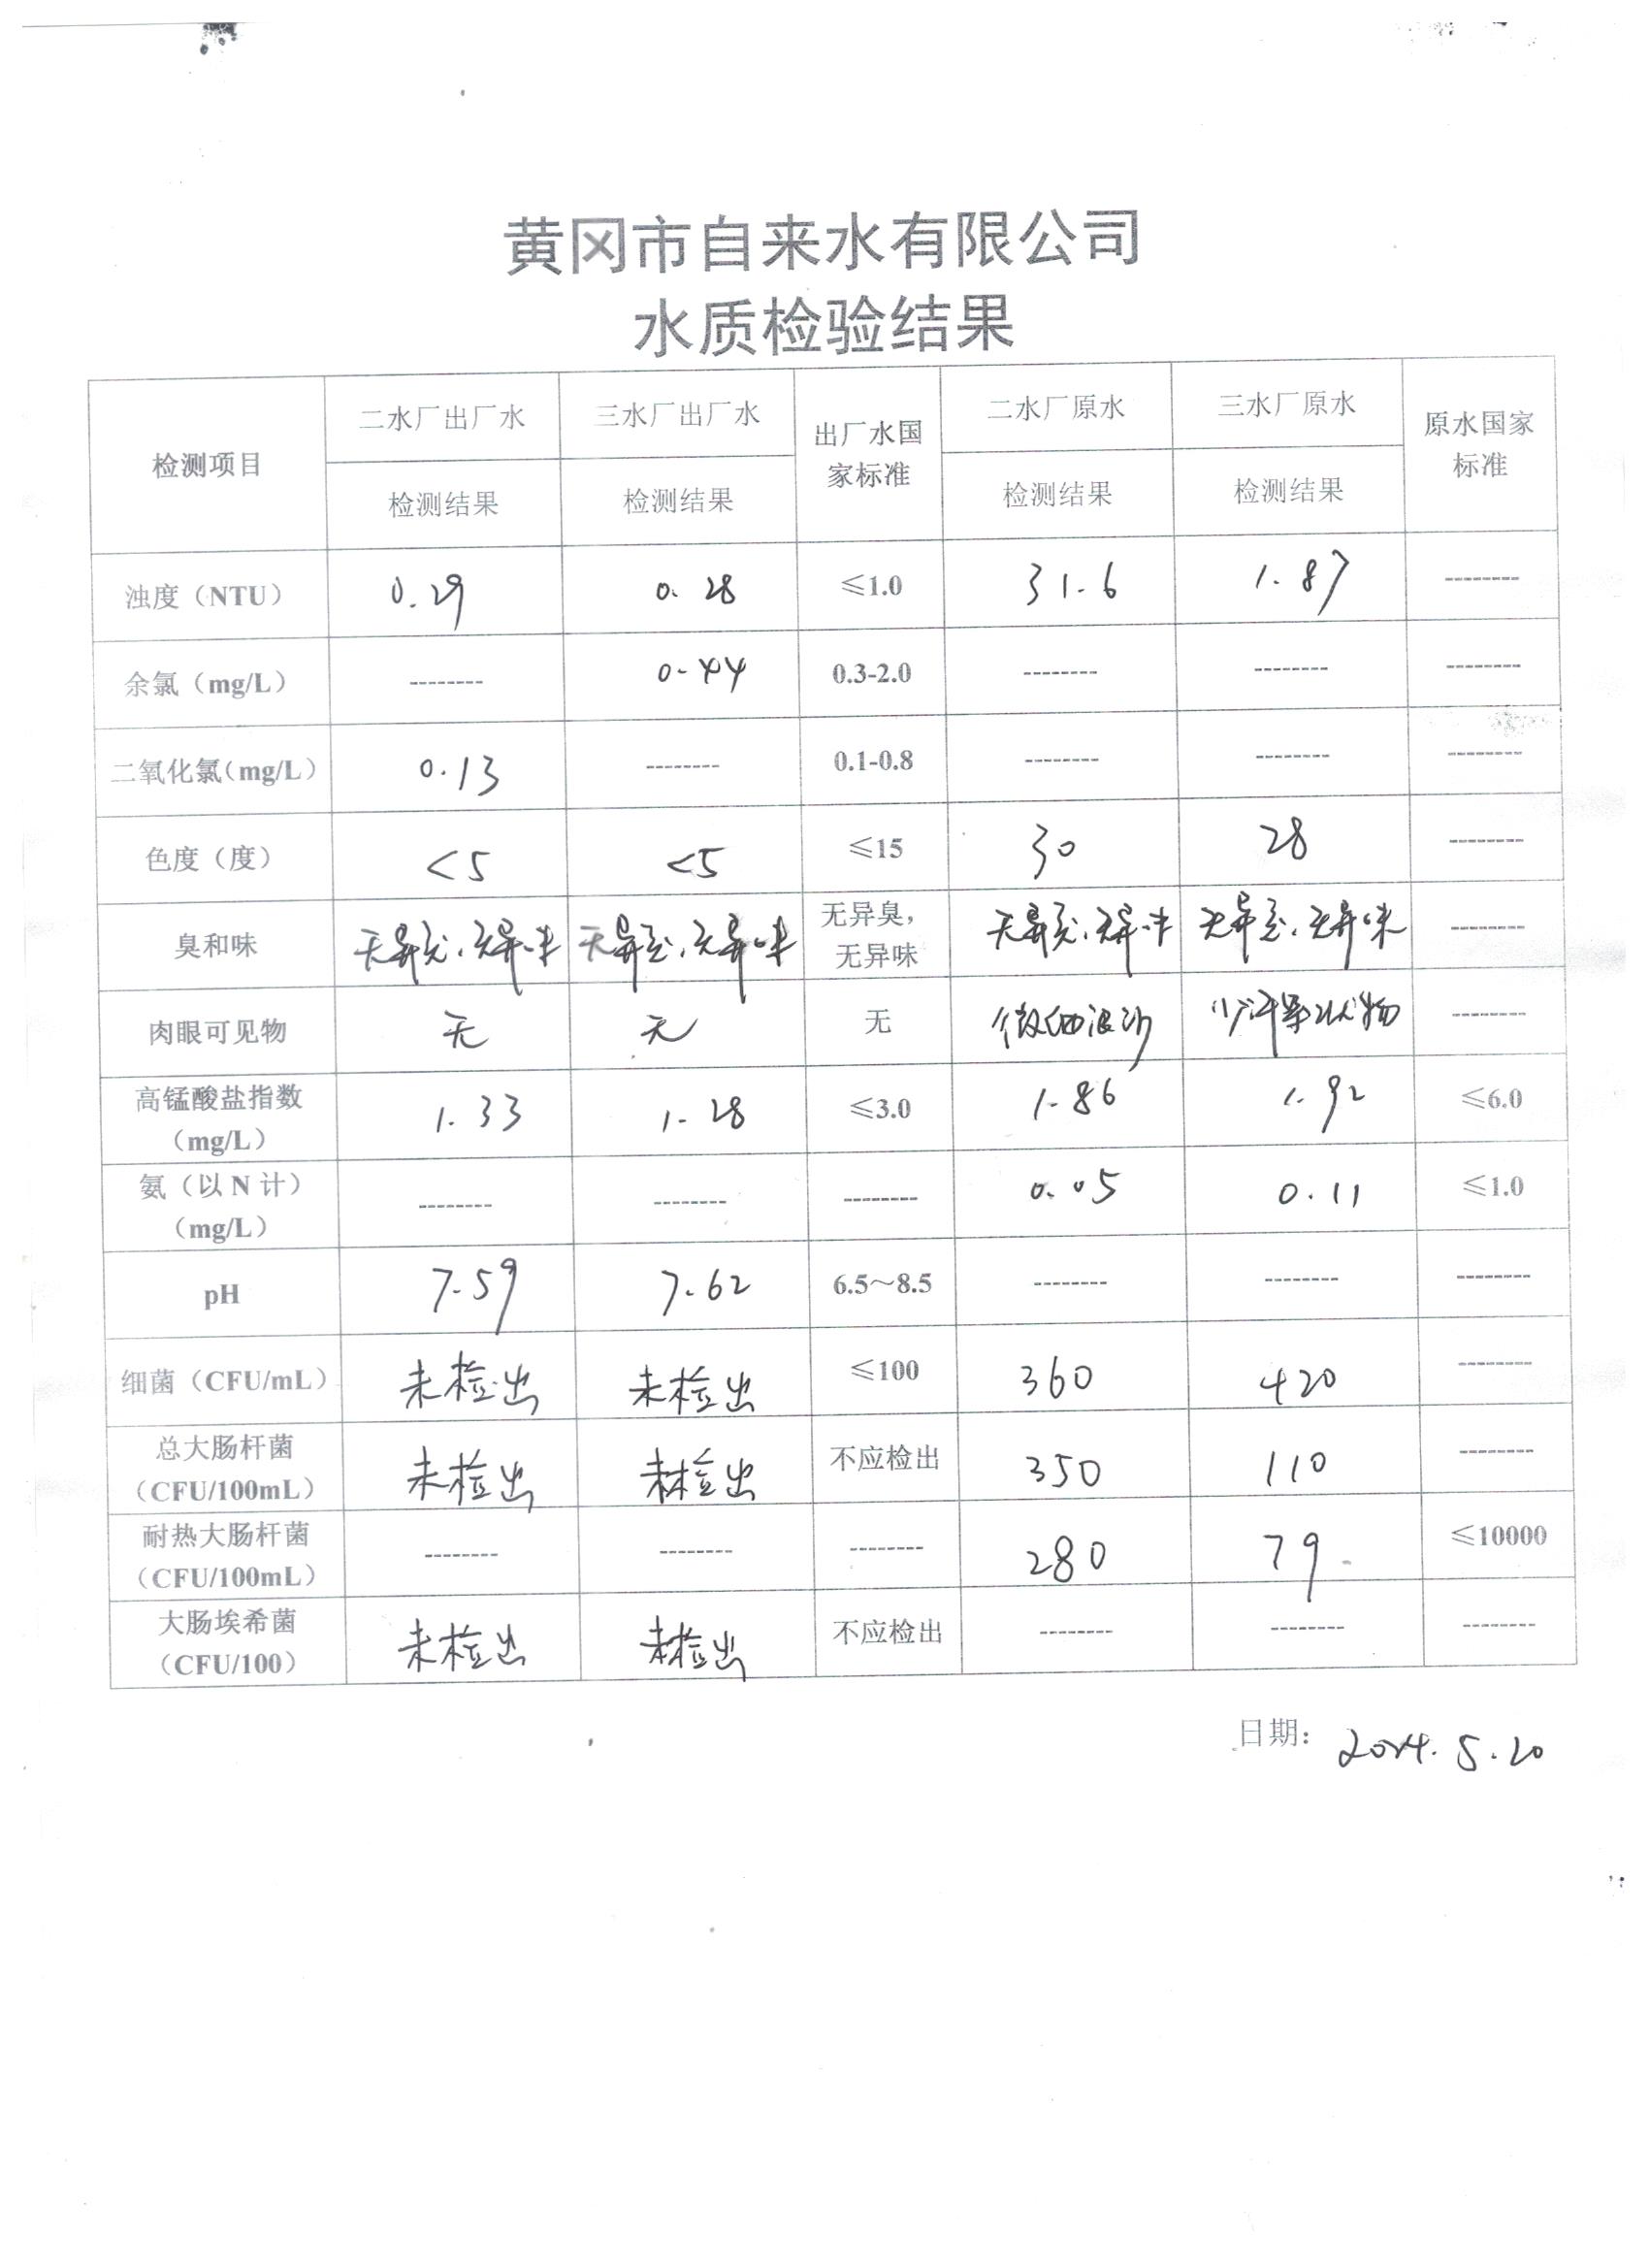 黄冈市自来水有限公司
水质检验结果
检测项目 二水厂出厂水 三水厂出厂水 出厂水国家标准 二水厂原水 三水厂原水 原水国家标准
检测结果 检测结果 检测结果 检测结果
浊度（NTU） 0.29 0.28 ≤1.0 31.6 1.87 --------
余氯（mg/L） -------- 0.44 0.3-2.0 -------- -------- --------
二氧化氯（mg/L） 0.13 -------- 0.1-0.8 -------- -------- --------
色度（度） <5 <5 ≤15 30 28 --------
臭和味 无异臭.无异味 无异臭.无异味 无异臭，无异味 无异臭.无异味 无异臭.无异味 --------
肉眼可见物 无 无 无 微细泥沙 --------
高锰酸盐指数（mg/L） 1.33 1.28 ≤3.0 1.86 1.92 ≤6.0
氨（以 N 计）（mg/L） -------- -------- -------- 0.05 0.11 ≤1.0
pH 7.59 7.62 6.5～8.5 -------- -------- --------
细菌（CFU/mL） 未检出 未检出 ≤100 360 420 --------
总大肠杆菌（CFU/100mL） 未检出 未检出 不应检出 350 110 --------
耐热大肠杆菌（CFU/100mL） -------- -------- -------- 280 79 ≤10000
大肠埃希菌（CFU/100） 未检出 未检出 不应检出 -------- -------- --------
日期： 2024.5.20